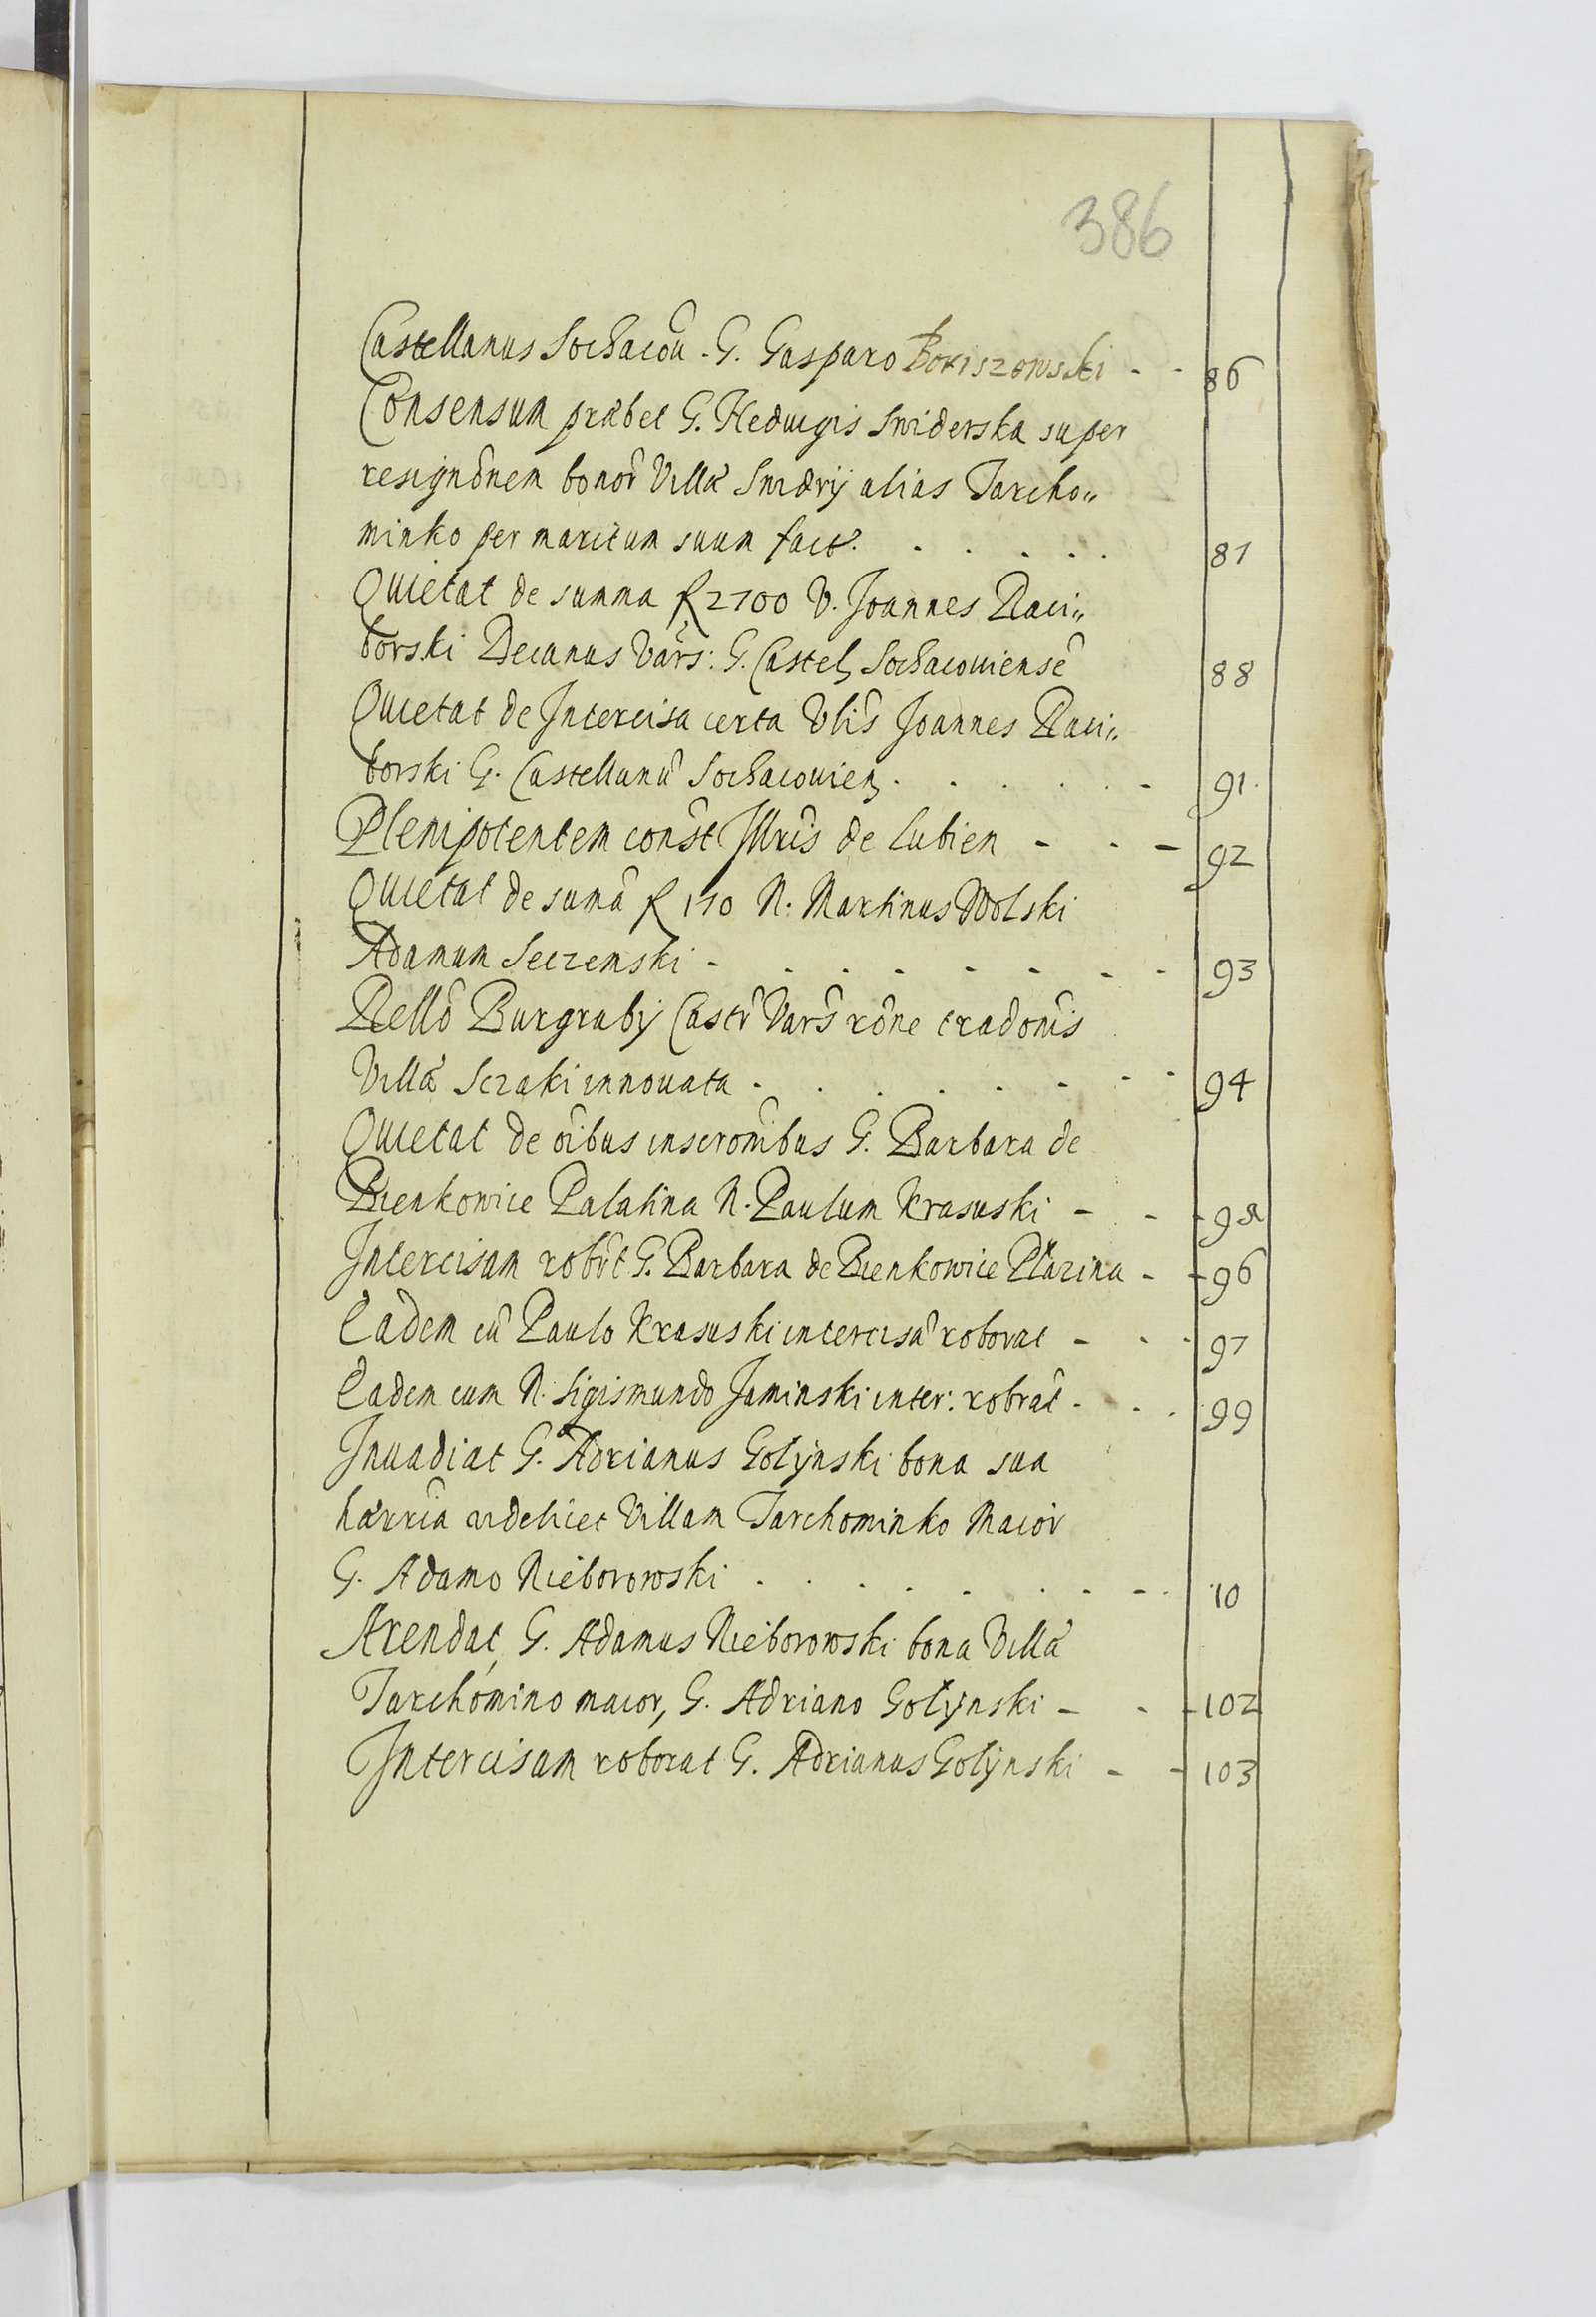 386
Castellanus Sochacoũ. G. Gasparo Boriszowski - - 86
Consensum præbet G. Hedwigis Swiderska super
resignõnem bonor̃ Villæ Swidrÿ alias Tarcho„
minko per maritum suum fact. . . . . . 87
Quietat de summa fl 2700 V. Joannes Raci„
borski Decanus Vars: G. Castel Sochacouiensẽ 88
Quietat de Intercisa certa Vlis̃ Joannes Raci„
borski G. Castellanũ Sochacouien . . . . . - 91.
Plenipotentem const̃ Illris̃ de Lubien - - - 92
Quietat de sumã fl 170 N. Martinus Wolski
Adamum Seczenski - - - - - - - - 93
Rellõ Burgrabÿ Castr̃ Vars̃ rõne tradonis̃
Villæ Sczaki innouata - . . . - - - - 94
Quietat de oĩbus inscronĩbus G. Barbara de
Bienkowice Palatina N. Paulum Krasuski - - - 95
Intercisam robr̃t G. Barbara de Bienkowice Pltazina - - 96
Eadem cũ Paulo Krasuski intercisã roborat - - - 97
Eadem cum N. Sigismundo Jaminski inter: robrat̃ - - . 99
Inuadiat G. Adrianus Golÿnski bona sua
hærria videlicet Villam Tarchominko Maior
G. Adamo Nieborowski . . . . . . - - . 10
Arendat G. Adamus Nieborowski bona Villæ
Tarchomino maior, G. Adriano Golÿnski - - - 102
Intercisam roborat G. Adrianus Golÿnski - - 103